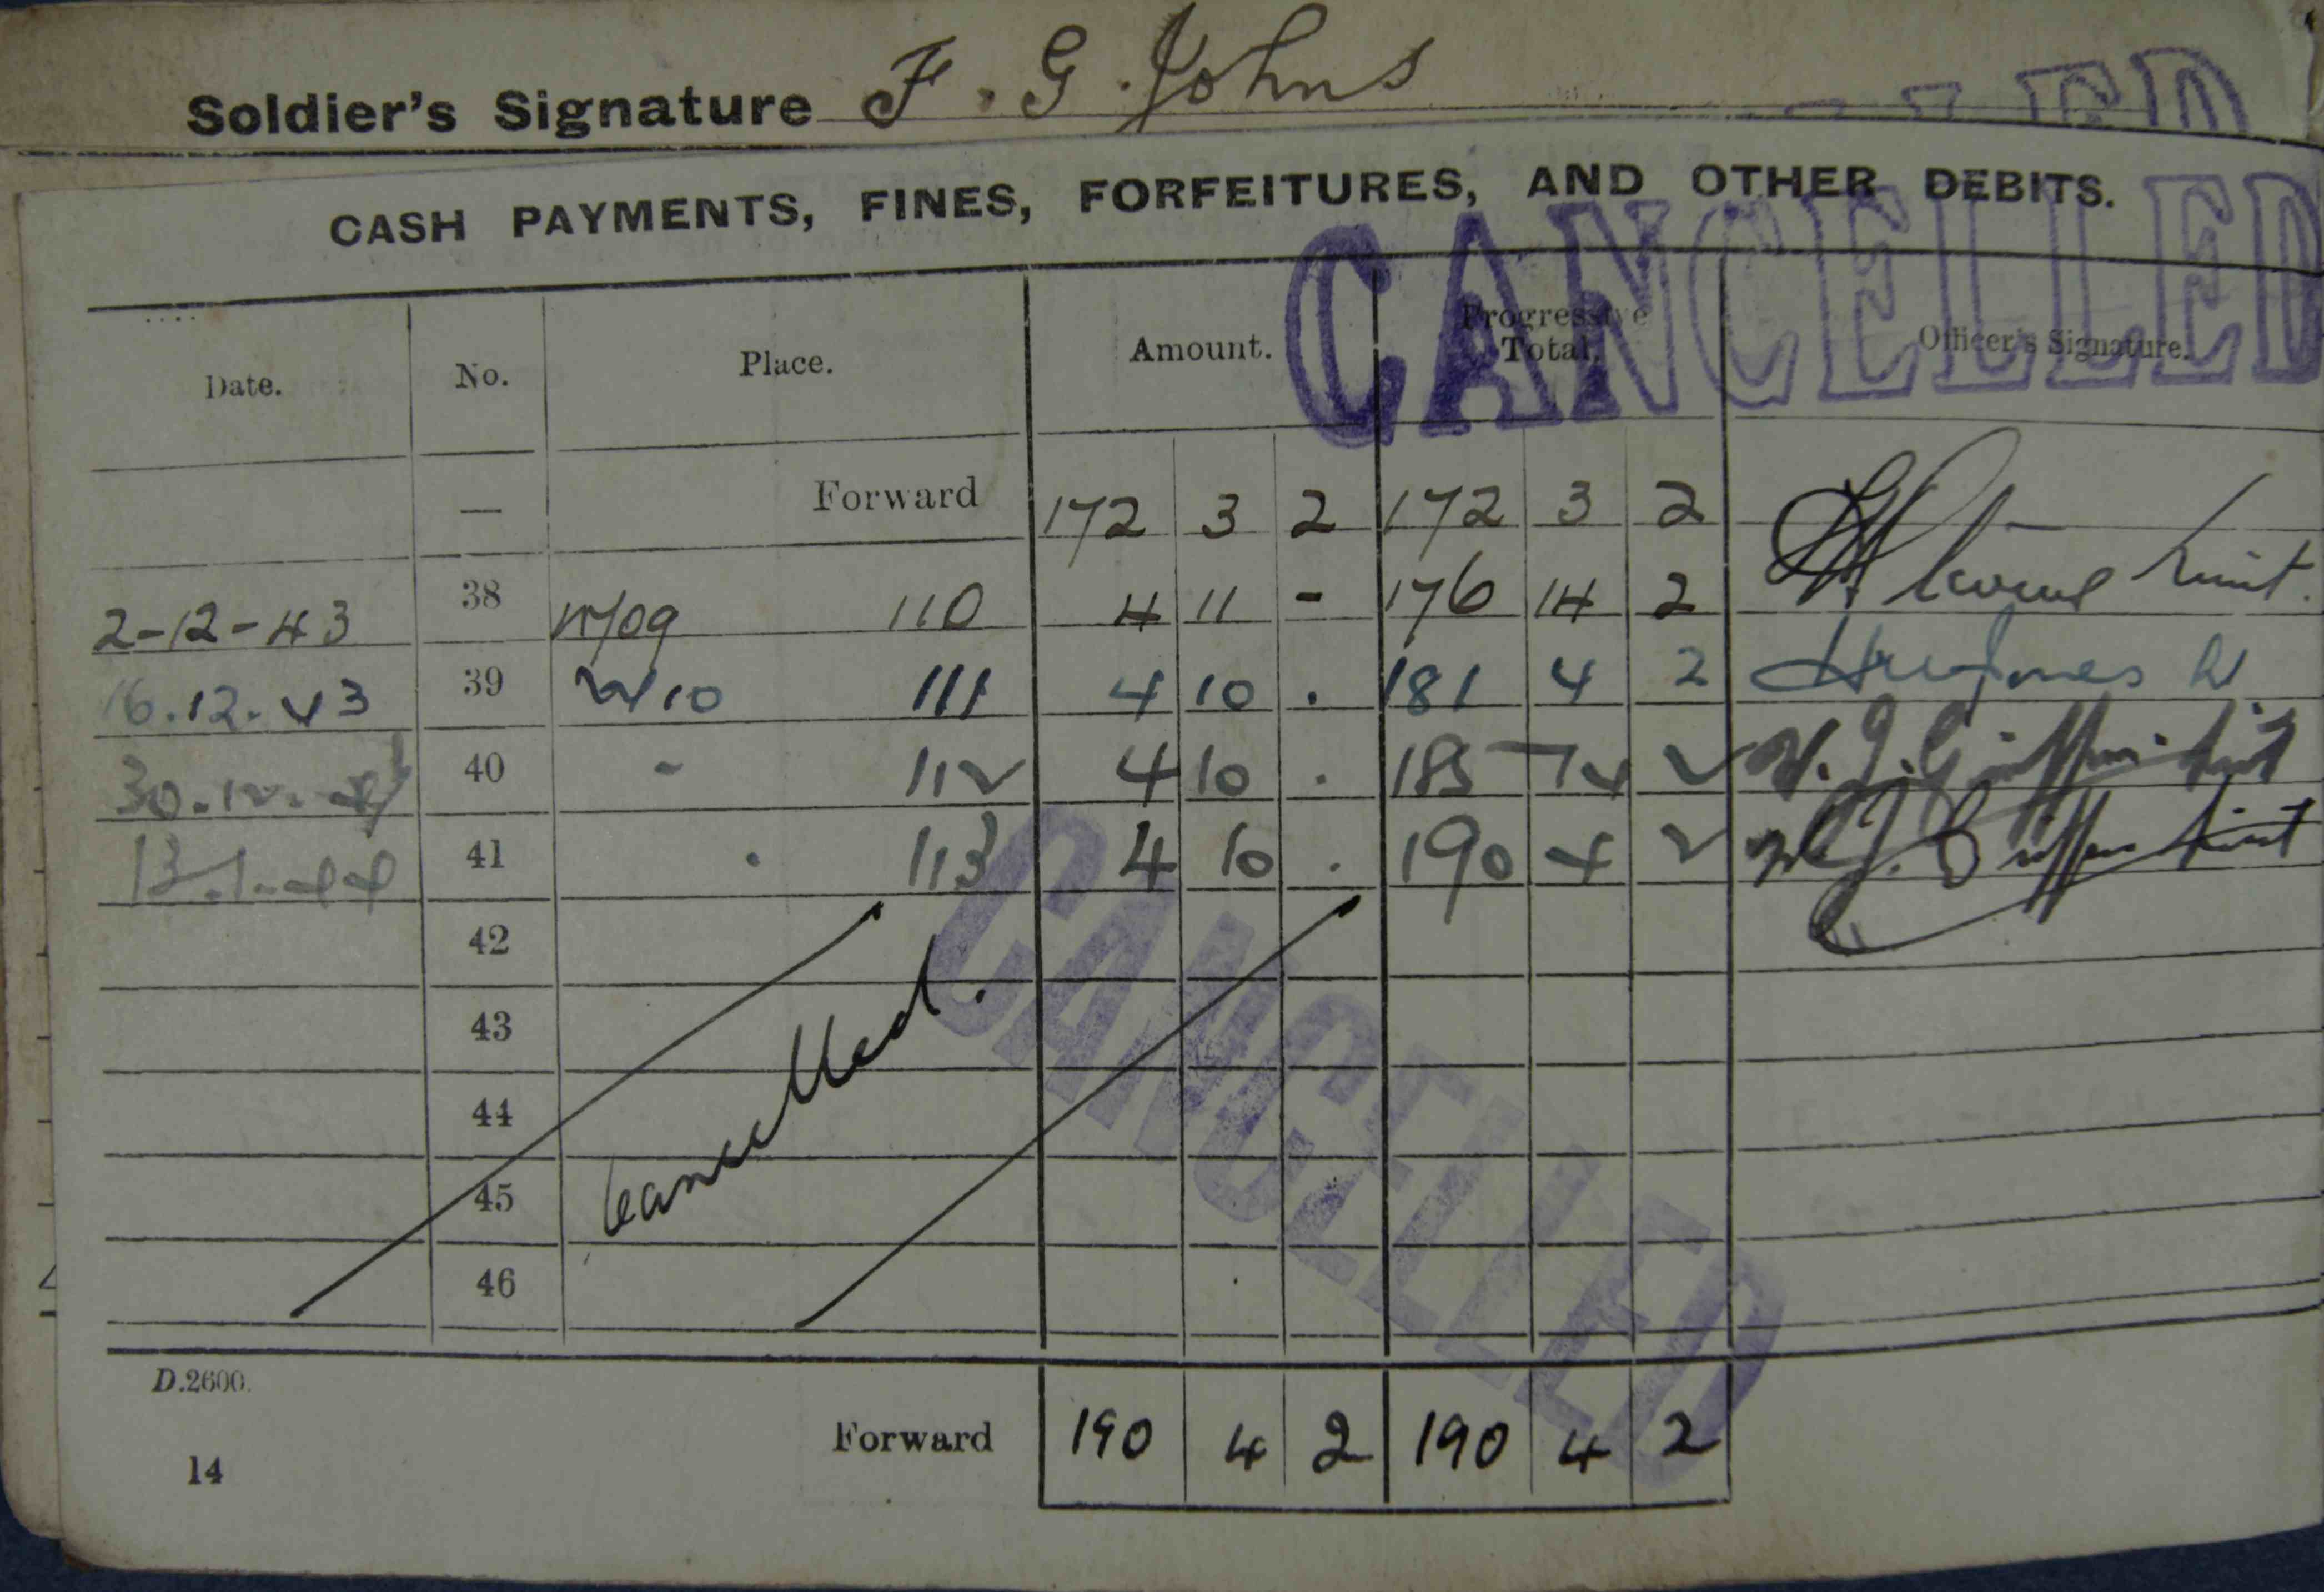 Soldier's Signature F. G. Johns
CASH PAYMENTS, FINES, FORFEITURES, AND OTHER DEBITS.
CANCELLED
Date. No. Place. Amount. Progressive Total. Officer's Signature.
— Forward 172 3 2 172 3 2
2-12-43 38 110 4 11 - 176 14 2
16.12.43 39 W10 111 4 10 . 181 4 2
30.12. 40 - 112 4 10 . 185 14 2
13.1.44 41 . 113 4 10 . 190 4 2
42
43
44
45
46
Cancelled.
CANCELLED
D.2600.
Forward 190 4 2 190 4 2
14